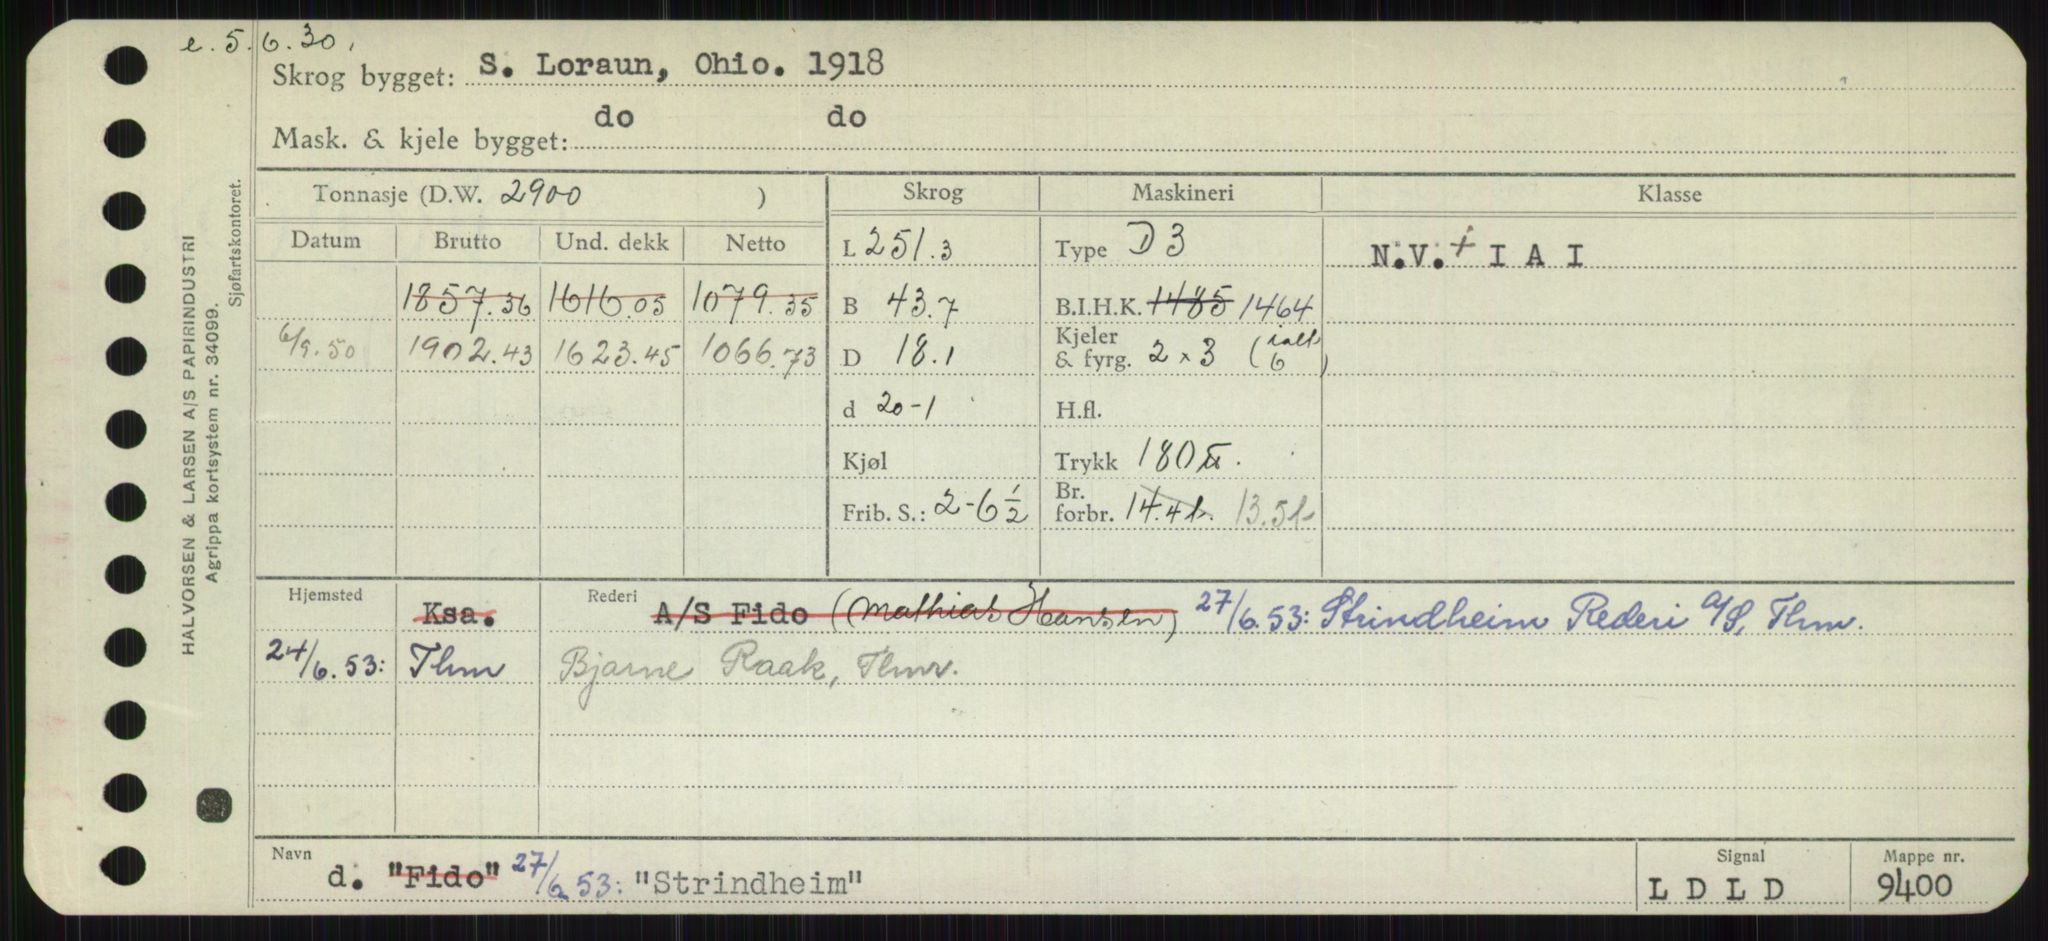 e. 5.6.30.
Skrog bygget: S. Loraun, Ohio. 1918
Mask. & kjele bygget: do do
HALVORSEN & LARSEN A/S PAPIRINDUSTRI
Agrippa kortsystem nr. 34099.
Sjøfartskontoret.
Tonnasje (D.W. 2900 ) Skrog Maskineri Klasse
Datum Brutto Und. dekk Netto L 251.3 Type D 3 N.V. + I A I
1857.36 1616.05 1079.35 B 43.7 B.I.H.K. 1485 1464
6/9.50 1902.43 1623.45 1066.73 D 18.1 Kjeler & fyrg. 2 x 3 (ialt 6)
d 20-1 H.fl.
Kjøl Trykk 180 lb.
Frib. S.: 2-6 1/2 Br. forbr. 14.4 t. 13.5 t
Hjemsted Ksa. Rederi A/S Fido (Mathias Hansen) 27/6.53: Strindheim Rederi A/S, Thm.
24/6.53: Thm Bjarne Raak, Thm.
Navn d. "Fido" 27/6.53: "Strindheim"
Signal L D L D
Mappe nr. 9400